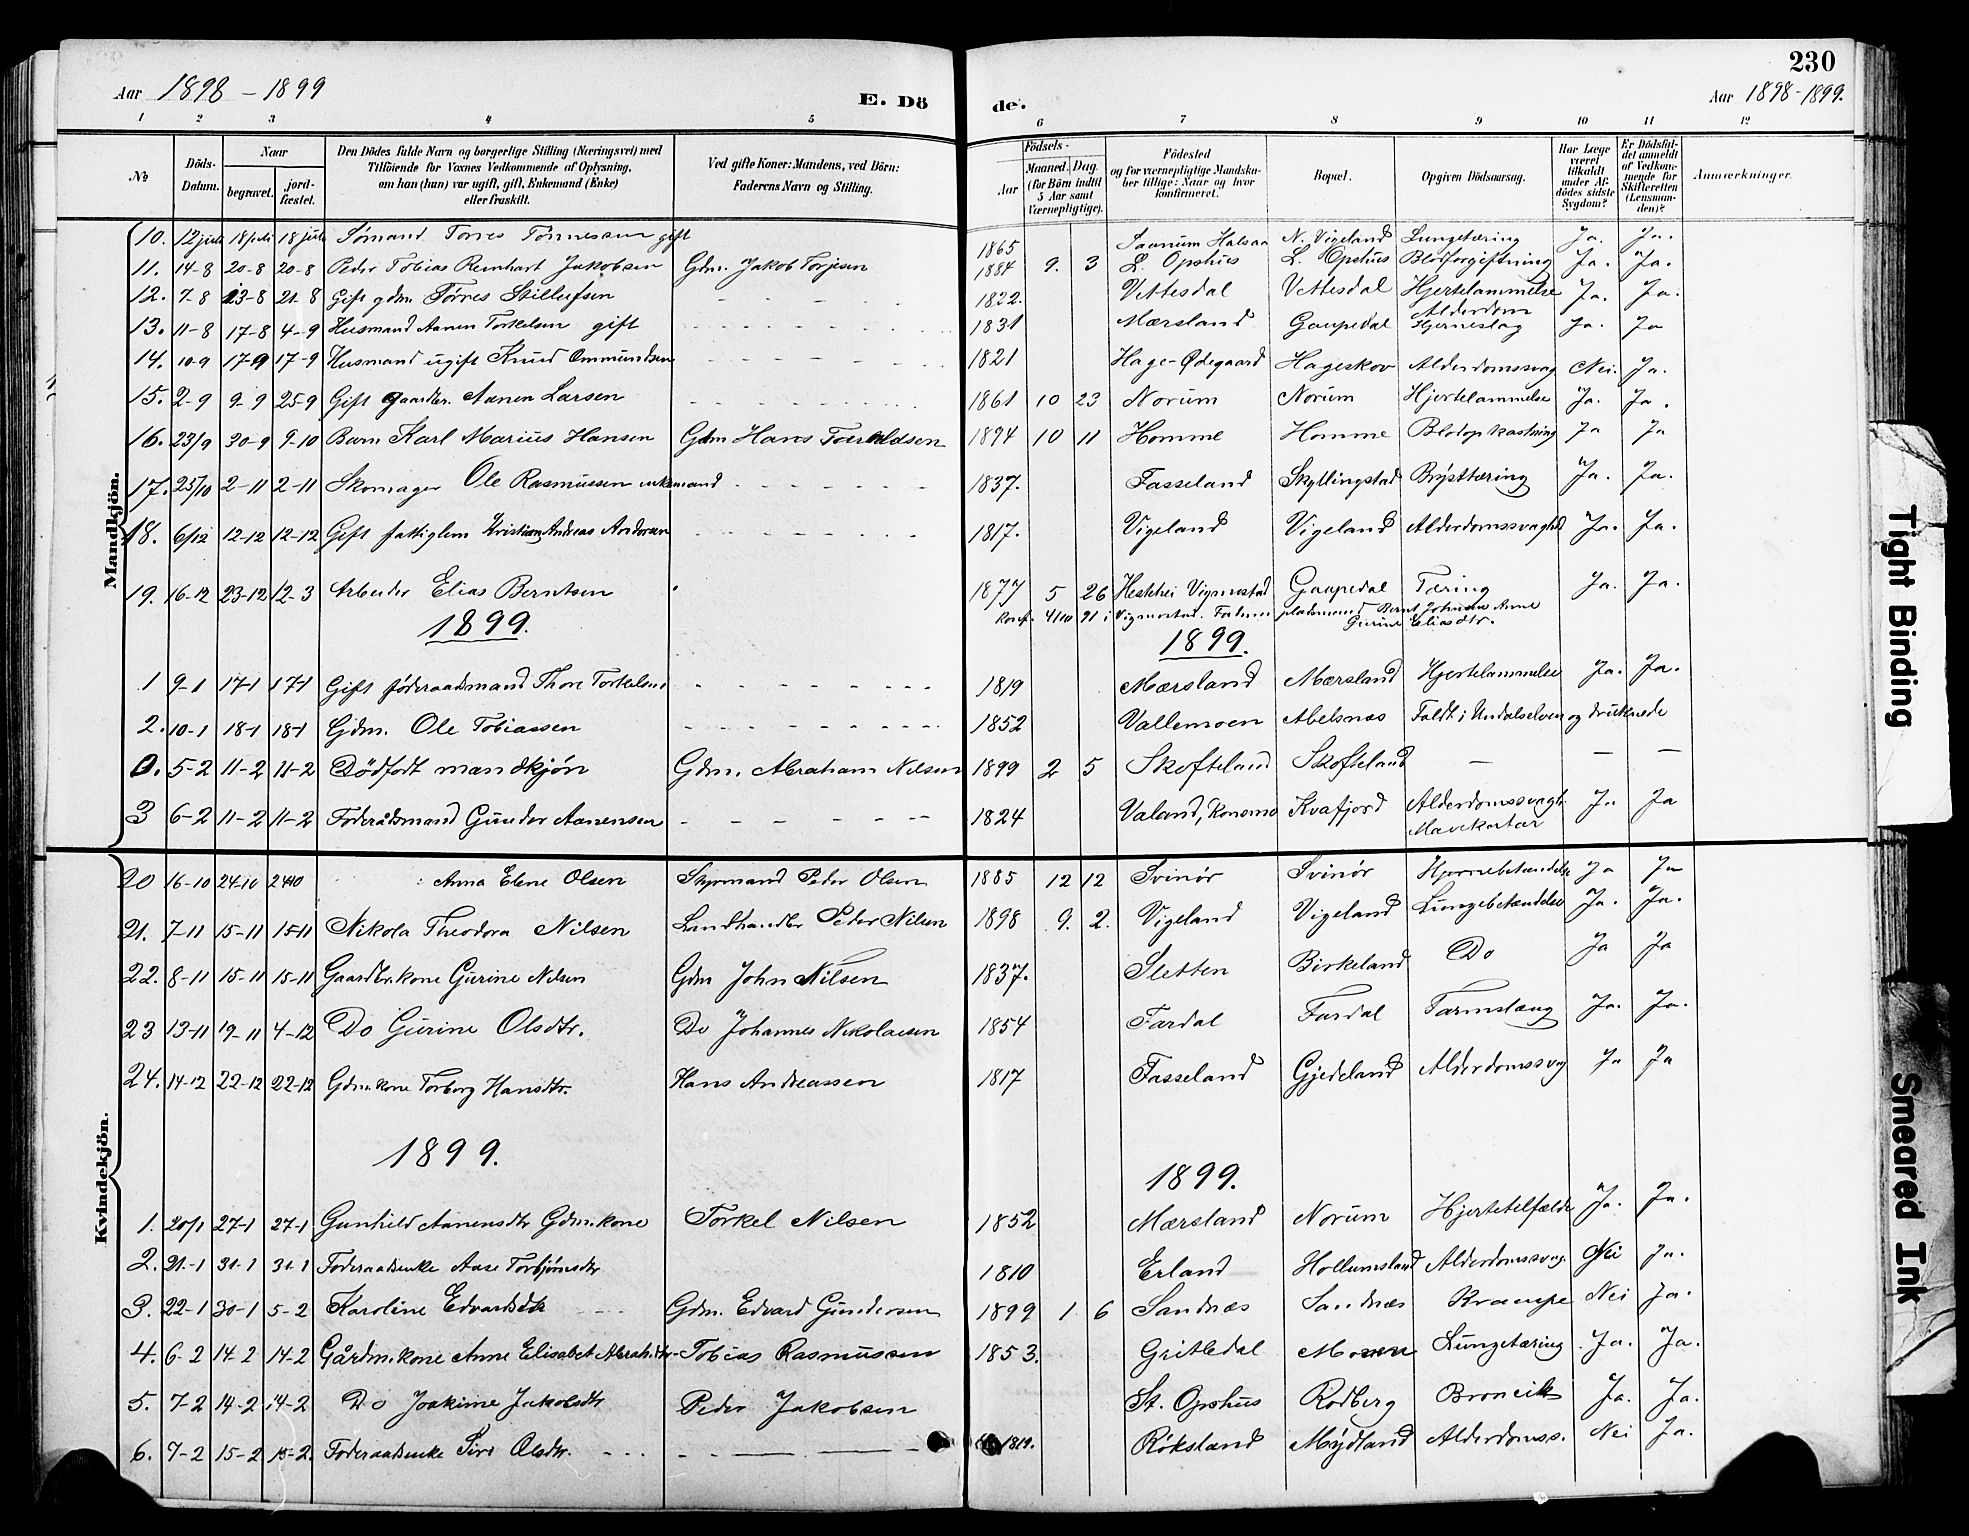 230
Aar 1898 - 1899
E. Dö
de.
Aar 1898-1899.
1 2 3 4 5 6 7 8 9 10 11 12
No
Döds-Datum.
Naar
begravet.
jord-fæstet.
Den Dödes fulde Navn og borgerlige Stilling (Næringsvei) med
Tilföiende for Voxnes Vedkommende af Oplysning,
om han (hun) var ugift, gift, Enkemand (Enke)
eller fraskilt.
Ved gifte Koner: Mandens, ved Börn:
Faderens Navn og Stilling.
Födsels-
Aar
Maaned. Dag.
(for Börn indtil
5 Aar samt
Værnepligtige).
Födested
og for værnepligtige Mandska-
ber tillige: Naar og hvor
konfirmeret.
Bopæl.
Opgiven Dödsaarsag.
Har Læge
været
tilkaldt
under Af-
dödes sidste
Sygdom?
Er Dödsfal-
det anmeldt
af Vedkom-
mende for
Skifteretten
(Lensman-
den)?
Anmærkninger.
Mandkjön.
10. 12 juli 18 juli 18 juli Sømand Torres Tønnessen gift 1865 Saanum Halsaa N. Vigeland Lungetæring Ja. Ja.
11. 14-8 20-8 20-8 Peder Tobias Reinhart Jakobsen Gdm. Jakob Torjesen 1884 9. 3 L. Opshus L. Opshus Blodforgiftning Ja. Ja.
12. 7-8 13-8 21-8 Gift gdm. Tørres Stillufsen 1822. Vettesdal Vettesdal Hjertelammelse Ja. Ja.
13. 11-8 17-8 4-9 Husmand Aanen Torkelsen gift 1831 Mærsland Gaupedal Alderdom Hjerneslag Ja. Ja
14. 10-9 17-9 17-9 Husmand ugift Knud Ommundsen 1821 Hage-Ødegaard Hageskov Alderdomssvag Nei. Ja.
15. 2-9 9-9 25-9 Gift gaardbr. Aanen Larsen 1861 10 23 Norum Norum Hjertelammelse Ja. Ja.
16. 23/9 30-9 9-10 Barn Karl Marius Hansen Gdm Hans Torkildsen 1894 10 11 Homme Homme Blodopkastning Ja Ja
17. 25/10 2-11 2-11 Skomager Ole Rasmussen enkemand 1837. Fasseland Skyllingstad Brysttæring Ja. Ja.
18. 6/12 12-12 12-12 Gift fattiglem Kristian Andreas Andersen 1817. Vigeland Vigeland Alderdomssvaghed Ja. Ja.
19. 16-12 23-12 12-3 Arbeider Elias Berntsen 1877 5 26 Hestehei Vigmostad Gaupedal Tæring Ja. Ja.
Konf. 4/10 91 i Vigmostad. pladsmand Bernt Johnsen Anne
Gurine Eliasdtr.
1899. 1899.
1 9-1 17-1 17-1 Gift føderaadsmand Thore Torkelsen 1819 Mærsland Mærsland Hjertelammelse Ja. Ja.
2. 10-1 18-1 18-1 Gdm. Ole Tobiassen 1852 Vallemoen Abelsnæs Faldt i Undalselven og druknede
0. 5-2 11-2 11-2 Dödfödt mandkjön Gdm. Abraham Nilsen 1899 2 5 Skofteland Skofteland — — —
3 6-2 11-2 11-2 Foderådsmand Gunder Aanensen 1824 Valand, Konsmo Kvafjord Alderdomssvagh. Ja Ja
Mavekatar
Kvindekjön.
20 16-10 24-10 24-10 Anna Elene Olsen Styrmand Peder Olsen 1885 12 12 Svinör Svinör Hjernebetændelse Ja Ja
21. 7-11 15-11 15-11 Nikola Theodora Nilsen Landhandler Peder Nilsen 1898 9. 2. Vigeland Vigeland Lungebetændelse Ja. Ja.
22. 8-11 15-11 15-11 Gaardbr.kone Gurine Nilsen Gdm John Nilsen 1837. Sletten Birkeland Do Ja Ja
23 13-11 19-11 4-12 Do Gurine Olsdtr. Do Johannes Nikolaisen 1854 Fardal Fardal Tarmslæng Ja. Ja.
24. 14-12 22-12 22-12 Gdm.kone Torborg Hansdtr. Hans Andreassen 1817 Fasseland Gjedeland Alderdomssvag Ja Ja
1899. 1899.
1. 20/1 27-1 27-1 Gunhild Aanensdtr Gdm.kone Torkel Nilsen 1852 Mærsland Norum Hjertetilfælde Ja. Ja.
2. 21-1 31-1 31-1 Foderaadsenke Aase Torbjørnsdtr 1810 Erland Hollumsland Alderdomssvag. Nei Ja.
3. 22-1 30-1 5-2 Karoline Edvardsdtr Gdm. Edvard Gundersen 1899 1. 6 Sandnæs Sandnæs Krampe Nei Ja.
4. 6-2 14-2 14-2 Gårdm.kone Anne Elisabet Abrah.dtr Tobias Rasmussen 1853. Gritledal Moeen Lungetæring Ja. Ja.
5. 7-2 14-2 14-2 Do Joakime Jakobsdtr Peder Jakobsen St. Opshus Rodberg Ja. Ja.
6. 7-2 15-2 15-2. Foderaadsenke Siri Olsdtr. 1819. Röksland Mydland Alderdomss. Nei Ja.
Tight Binding
Smeared Ink